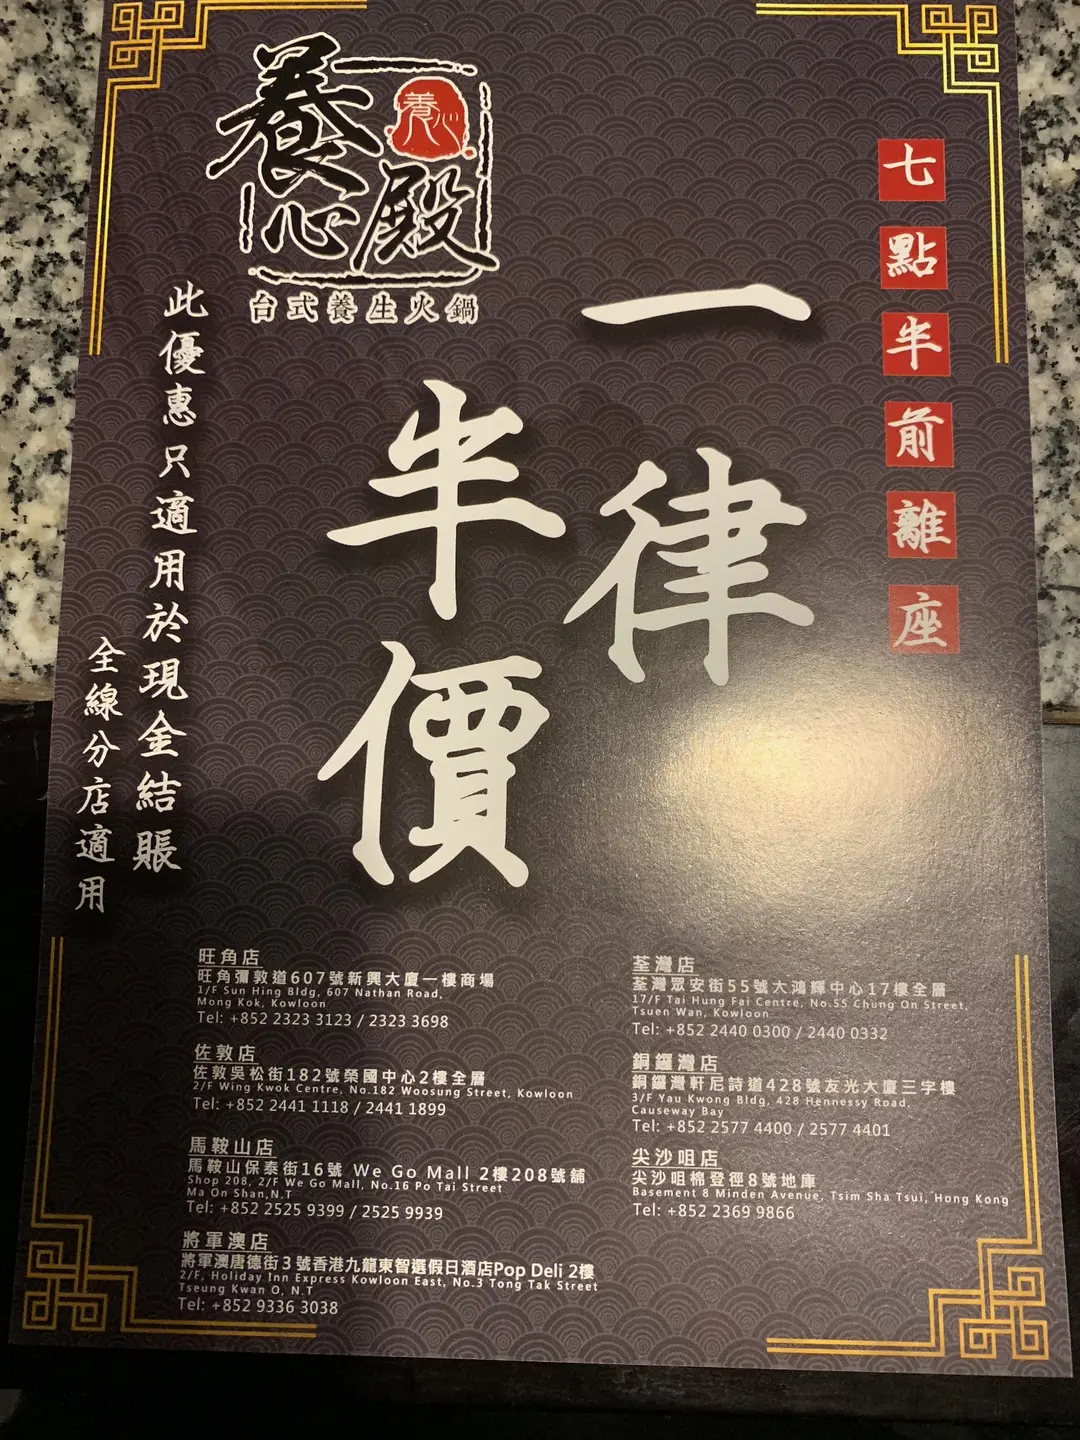 養心殿
養心
台式養生火鍋
七點半前離座
一律
半價
此優惠只適用於現金結賬
全線分店適用
旺角店
旺角彌敦道607號新興大廈一樓商場
1/F Sun Hing Bldg, 607 Nathan Road,
Mong Kok, Kowloon
Tel: +852 2323 3123 / 2323 3698
佐敦店
佐敦吳松街182號榮國中心2樓全層
2/F Wing Kwok Centre, No.182 Woosung Street, Kowloon
Tel: +852 2441 1118 / 2441 1899
馬鞍山店
馬鞍山保泰街16號 We Go Mall 2樓208號舖
Shop 208, 2/F We Go Mall, No.16 Po Tai Street
Ma On Shan,N.T
Tel: +852 2525 9399 / 2525 9939
將軍澳店
將軍澳唐德街3號香港九龍東智選假日酒店Pop Deli 2樓
2/F, Holiday Inn Express Kowloon East, No.3 Tong Tak Street
Tseung Kwan O, N.T
Tel: +852 9336 3038
荃灣店
荃灣眾安街55號大鴻輝中心17樓全層
17/F Tai Hung Fai Centre, No.55 Chung On Street,
Tsuen Wan, Kowloon
Tel: +852 2440 0300 / 2440 0332
銅鑼灣店
銅鑼灣軒尼詩道428號友光大廈三字樓
3/F Yau Kwong Bldg, 428 Hennessy Road,
Causeway Bay
Tel: +852 2577 4400 / 2577 4401
尖沙咀店
尖沙咀棉登徑8號地庫
Basement 8 Minden Avenue, Tsim Sha Tsui, Hong Kong
Tel: +852 2369 9866